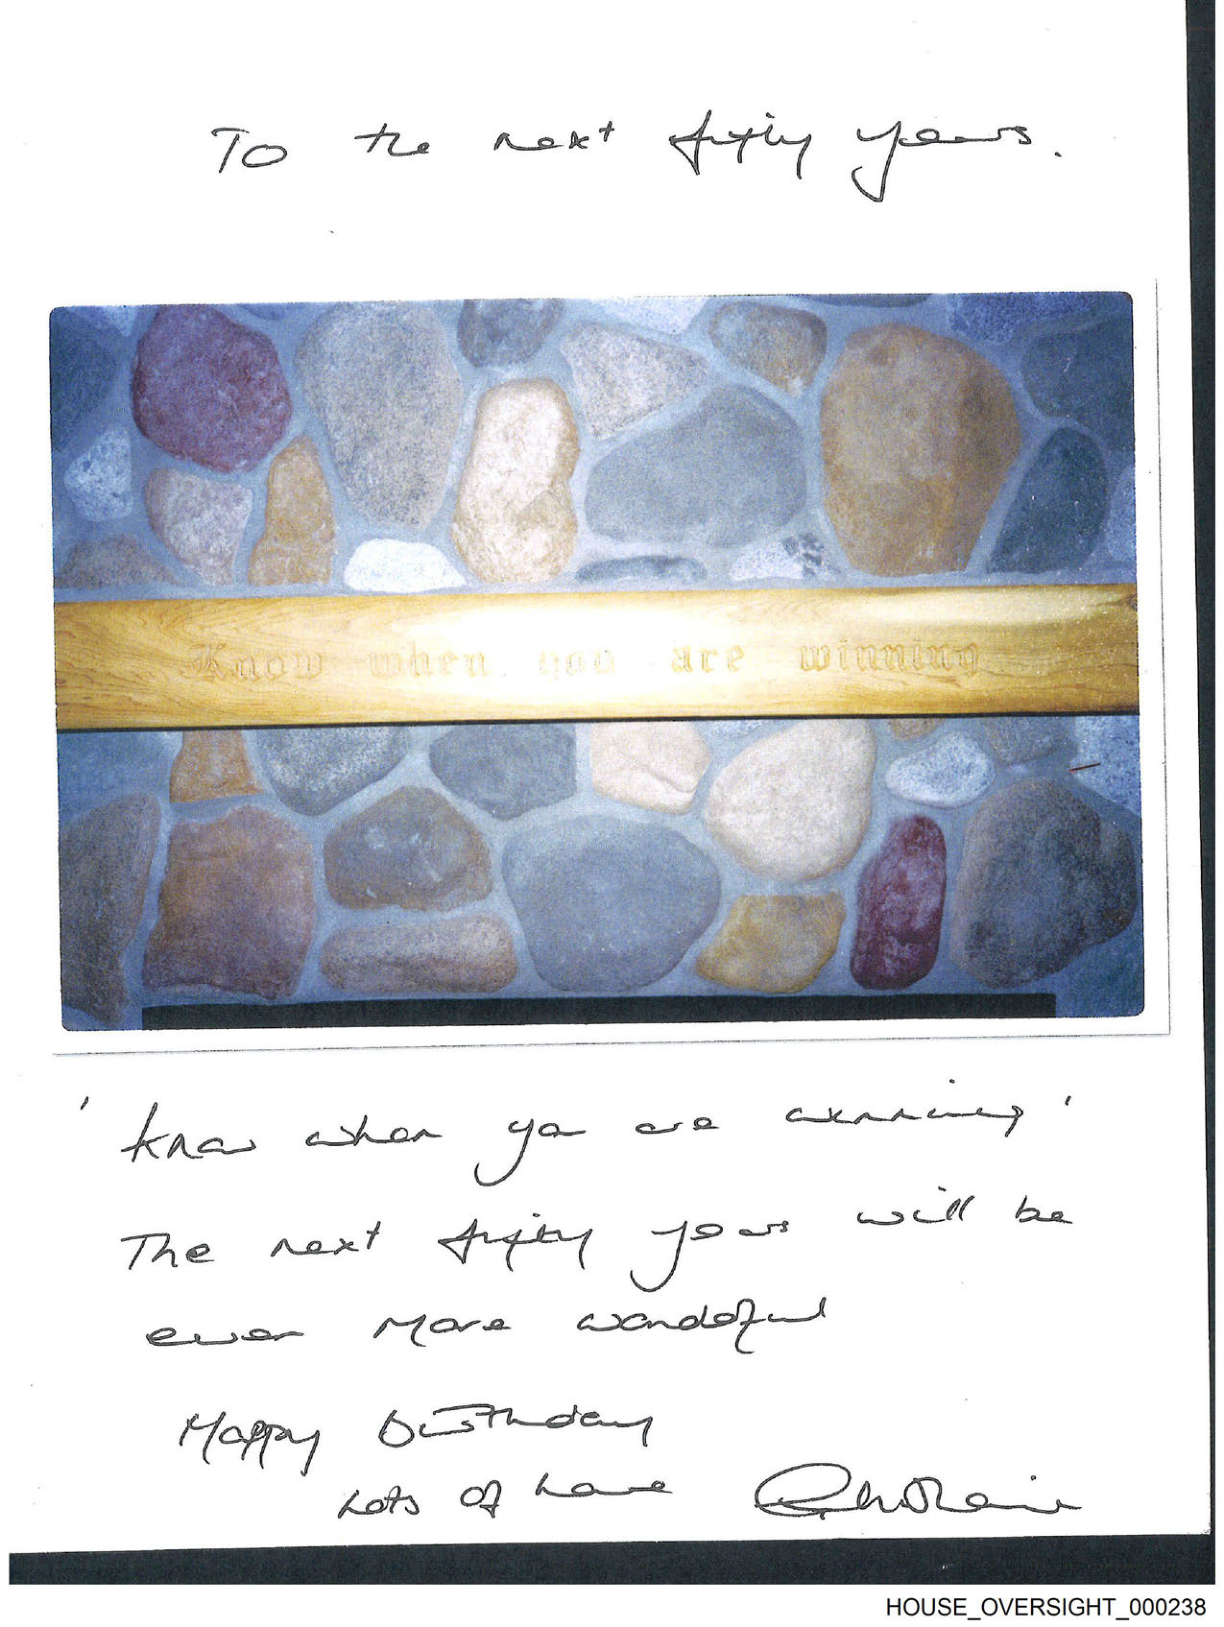 To the next fifty years.
Know when you are winning
'Know when you are winning'
The next fifty years will be
even more wonderful
Happy Birthday
Lots of Love
HOUSE_OVERSIGHT_000238